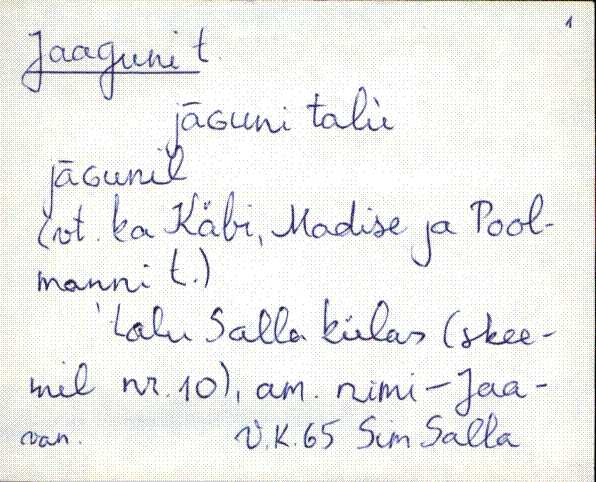 1
Jaaguni t.
jāGuni talu
jāGunil
(vt. ka Käbi, Madise ja Pool-
manni t.)
'talu Salla külas (skee-
mil nr. 10), am. nimi - Jaa-
van. V.K.65 Sim Salla